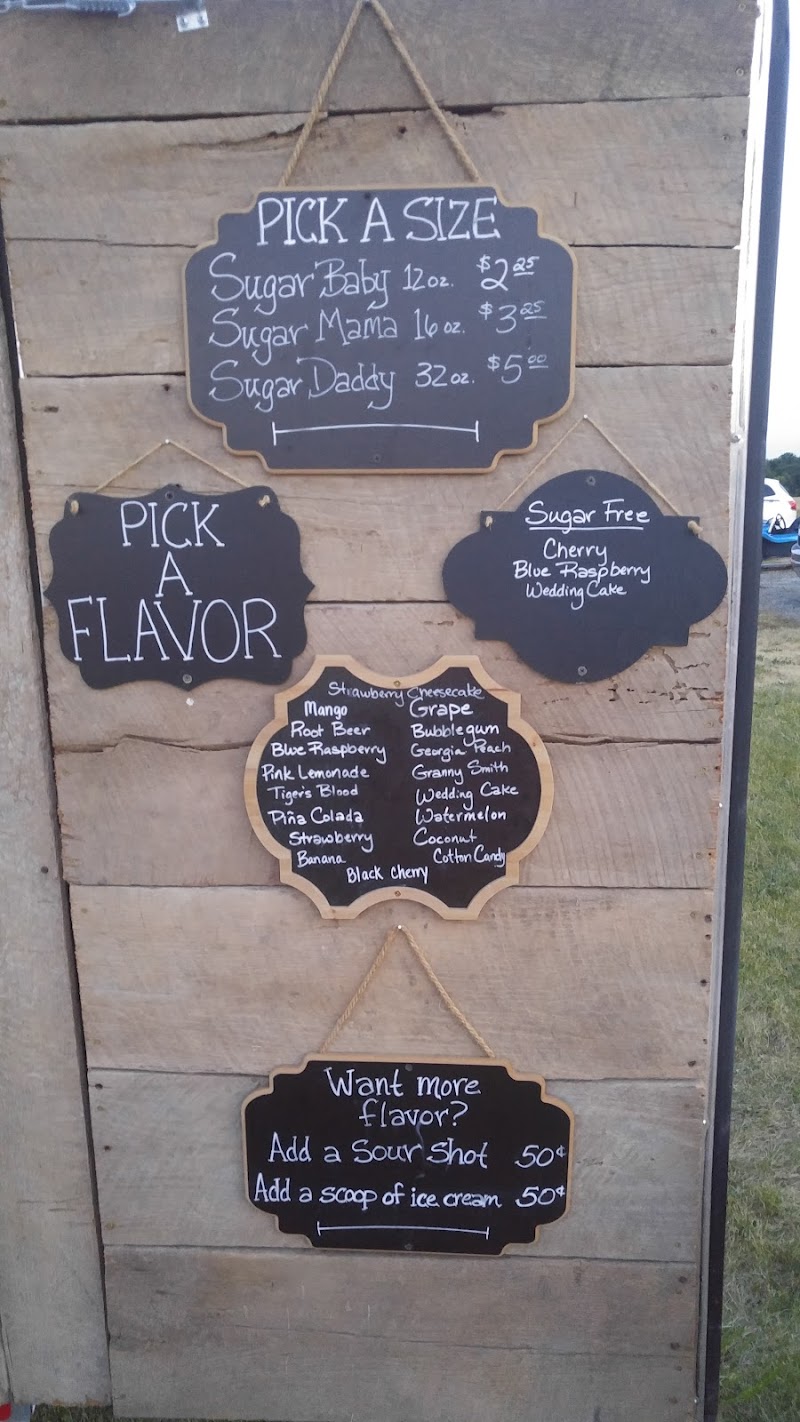 PICK A SIZE
Sugar Baby 12 oz. $2 25
Sugar Mama 16 oz. $3 25
Sugar Daddy 32 oz. $5 00
PICK
A
FLAVOR
Sugar Free
Cherry
Blue Raspberry
Wedding Cake
Strawberry Cheesecake
Mango
Root Beer
Blue Raspberry
Pink Lemonade
Tiger's Blood
Piña Colada
Strawberry
Banana
Grape
Bubblegum
Georgia Peach
Granny Smith
Wedding Cake
Watermelon
Coconut
Cotton Candy
Black Cherry
Want more
flavor?
Add a Sour Shot 50¢
Add a scoop of ice cream 50¢